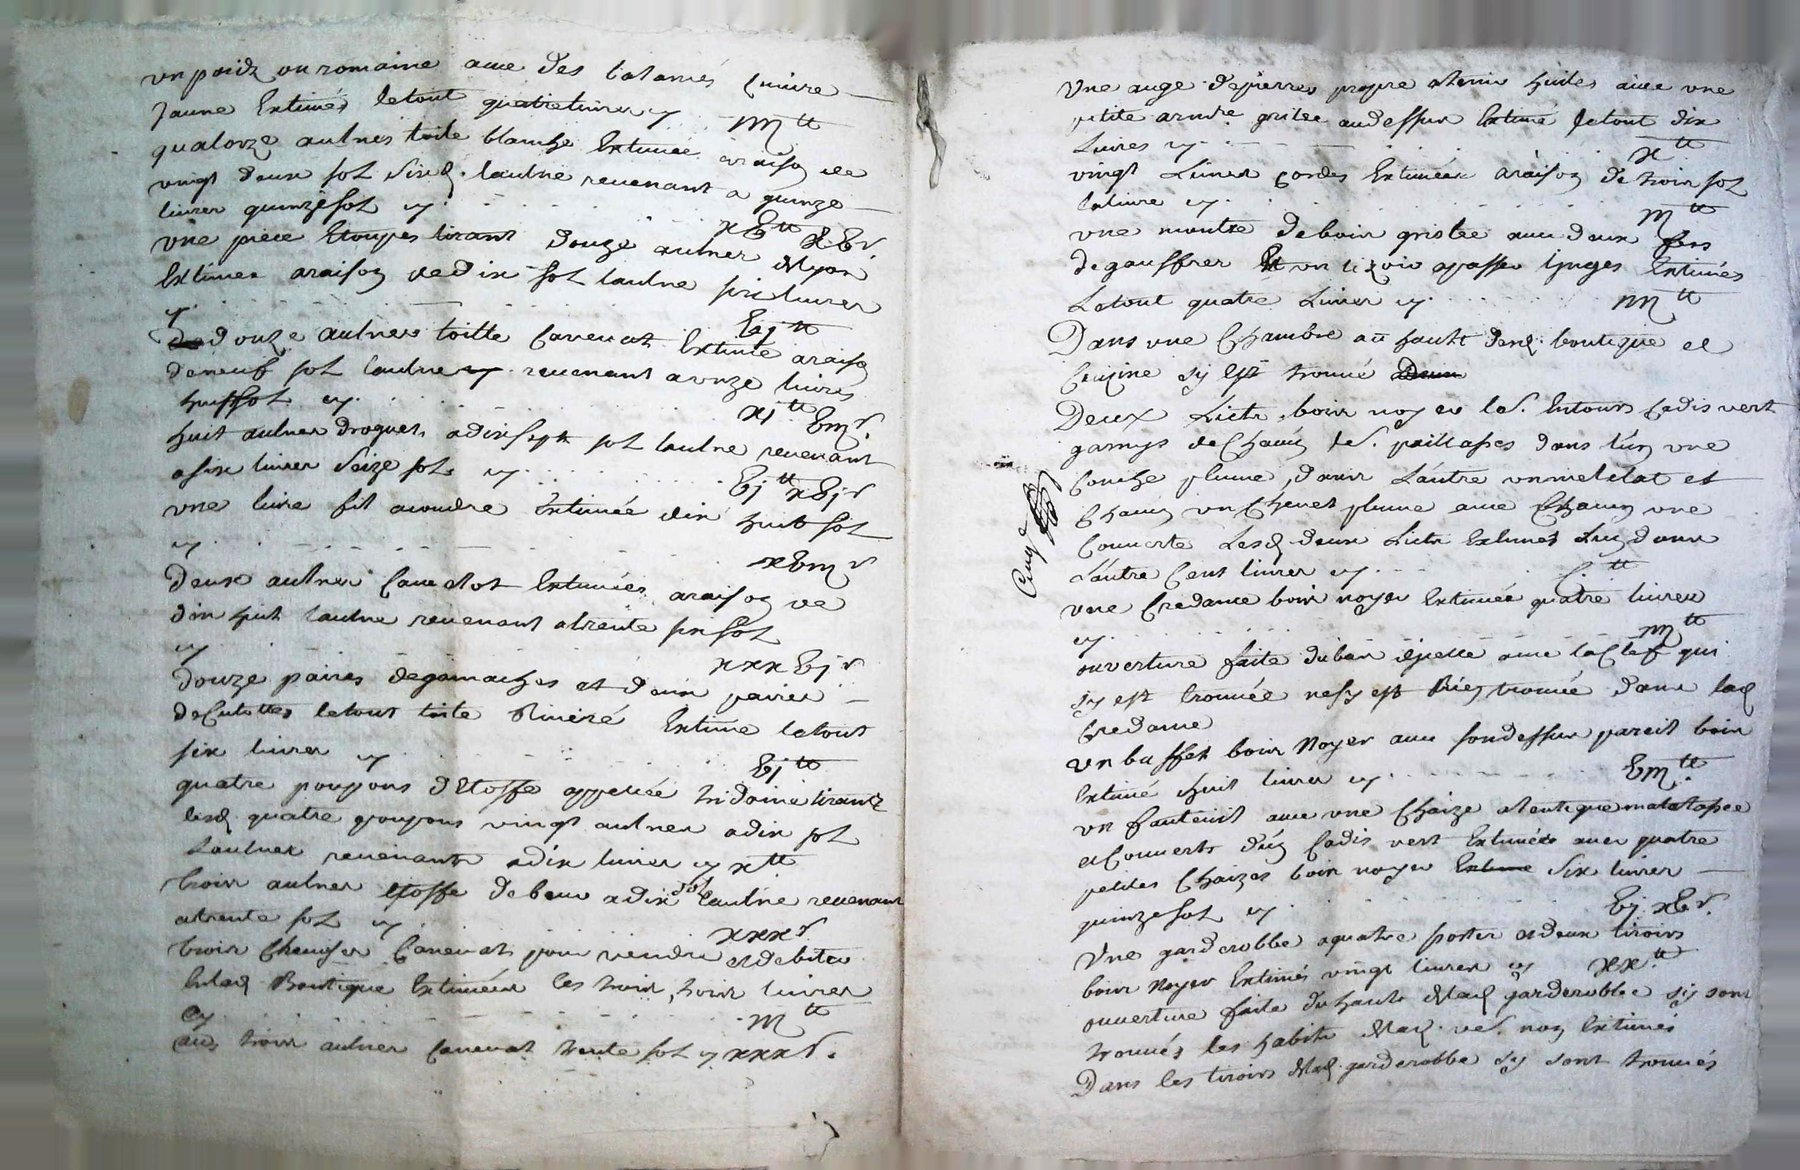 un poidz ou romaine avec des balances cuivre
jaune Extimés letout quatre livres cy
iiii lt
quatorze aulnes toile blanche Extimée araison de
vingt deux sol six d. laulne revenant a quinze
livres quinze sol cy
xv lt xv s.
une piece Etoupes tirant douze aulnes
Extimée araison de dix sol laulne six livres
cy
douze aulnes toille Canevat Extimée araison
de neuf sol laulne cy revenant a onze livres
huit sol cy
xj lt viii s.
huit aulnes droguet adixsept sol laulne revenant
asix livres seize sols cy
vj lt xvj s
une livre fil acoudre Extimée dix huit sol
cy
xviii s
Deux aulnes Canevat Extimées araison de
dix huit laulne revenant atrente six sol
cy
xxxvj s
Douze paires de gamaches et deux paires
de Culottes letout toile Extimé letout
six livres cy
vj lt
quatre coupons d'Etoffe appellée tridaine tirants
lesd. quatre coupons vingt aulnes adix sol
laulnes revenants adix livres cy x lt
trois aulnes etoffe adix sol laulne revenant
atrente sol cy
xxx s
trois Canevat pour vendre et debiter
Boutique Extimées les trois, trois livres
cy
iii lt
trois aulnes canevat trente sol cy xxx s.
Une auge depierres propre atenir huiles avec une
petite grilée audessus Extimé letout dix
Livres cy
x lt
vingt Livres cordes Extimées araison de trois sol
lalivre cy
iii lt
une montre debois grislée avec deux fers
degauffrer Et un apasser linges Extimés
Letout quatre Livres cy
iiii lt
Dans une Chambre au haut desd. boutique et
Cuizine sy Est trouvé
Deux Licts bois noyer les Entours cadis vert
garnys de Chacun les paillasses dans l'un une
Couche plume, dans L'autre un matelat et
Chacun un Chevet plume avec Chacun une
Couverte Lesd. deux Licts Extimés Lun dans
L'autre Cent livres cy
C lt
une Credance bois noyer Extimée quatre livres
cy
iiii lt
ouverture faite avec la Clef qui
sy est trouvée ne sy est Rien trouvée dans lad.
Credance
un buffet bois Noyer avec son dessus pareil bois
Extimé huit livres cy
viii lt
un fauteuil avec une Chaize alentique matelassée
et Couverts d'un Cadis vert Extimées avec quatre
petites Chaizes bois noyer Six livres
quinze sol cy
vj xv s.
Une garderobbe aquatre portes et deux tiroirs
bois Noyer Extimés vingt livres cy
xx lt
ouverture faite du haut de lad. garderobbe sy sont
trouvés les habits de lad. ve. non Extimés
Dans les tiroirs de lad. garderobbe sy sont trouvés